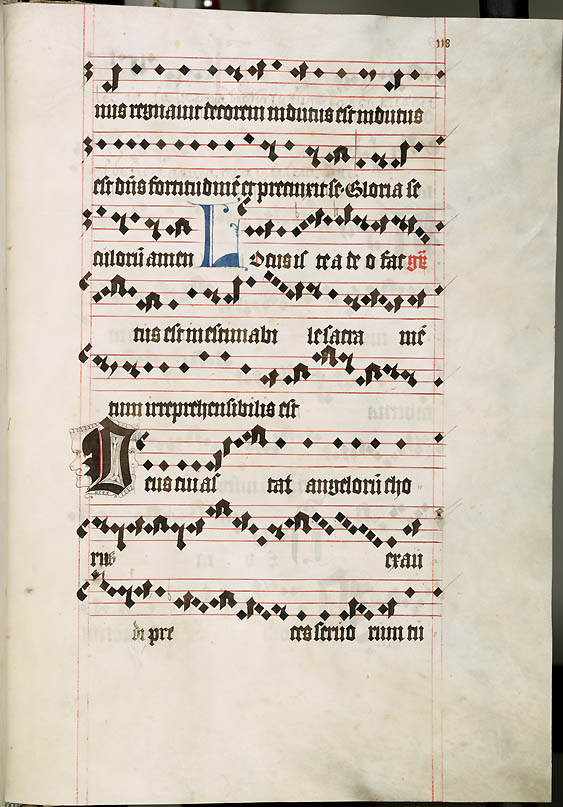 118
nus regnauit decorem indutus est indutus
est dn̄s fortitudinē et precinxit se Gloria se
culorū amen Locus is te a de o fac gr̄
tus est inestimabi le sacra mē
tum irreprehensibilis est
Deus cui as tat angelorū cho
rus exau
di pre ces seruo rum tu